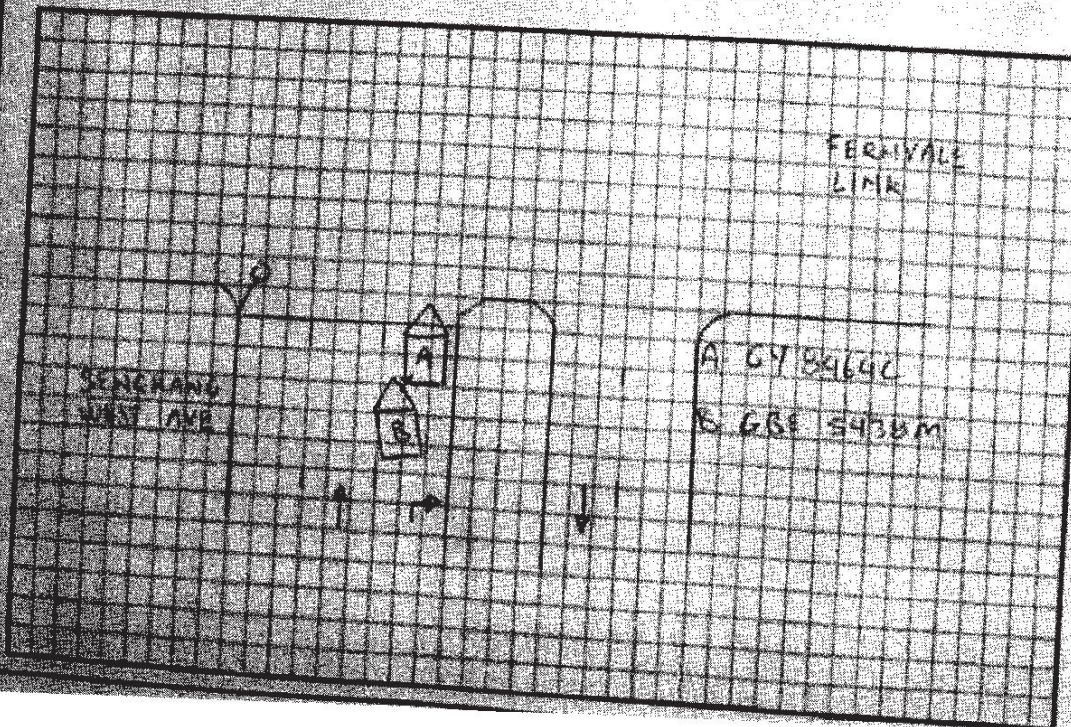 FERNVALE
LINK
SENGKANG
WEST AVE
A
B
A GY 8464C
B GBE 5438M